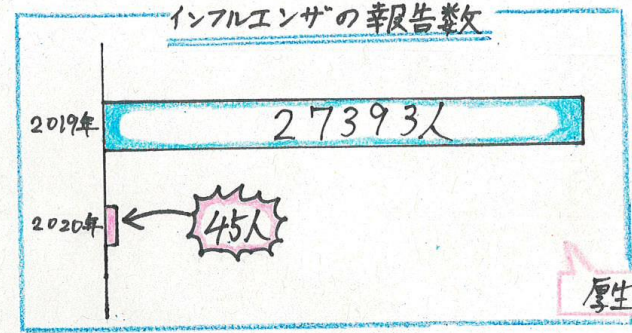 インフルエンザの報告数
2019年
27393人
2020年
45人
厚生